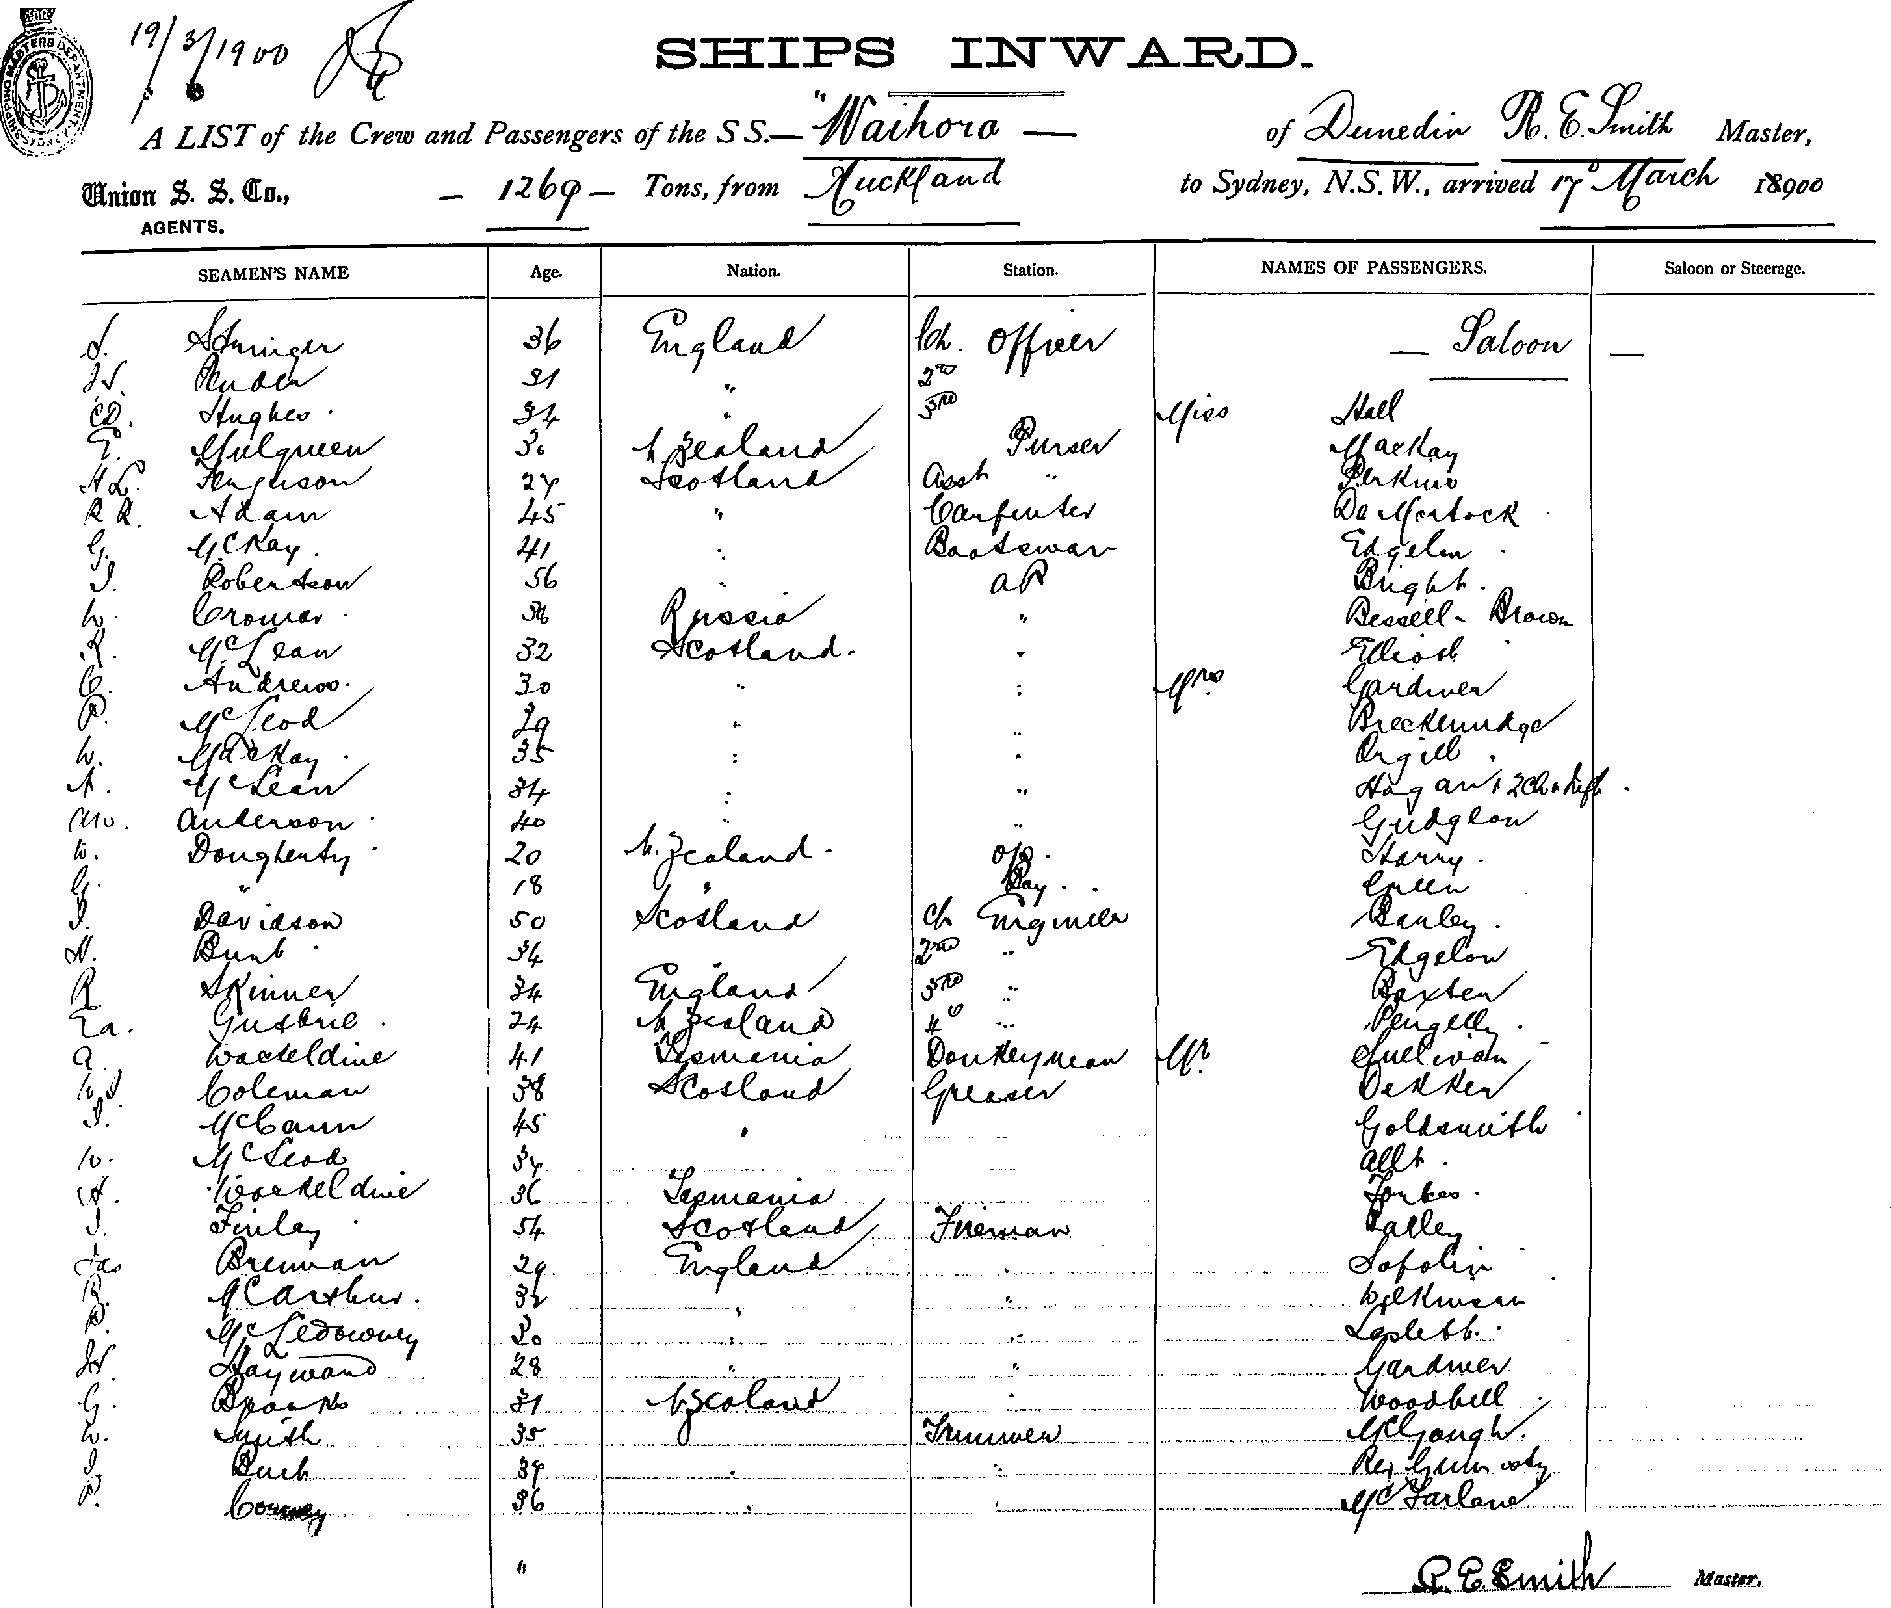 19/3/1900
SHIPS INWARD.
A LIST of the Crew and Passengers of the SS.— "Waihora — of Dunedin R. E. Smith Master,
Union S. S. Co., — 1269 — Tons, from Auckland to Sydney, N.S.W., arrived 17 March 18900
AGENTS.
SEAMEN'S NAME Age. Nation. Station. NAMES OF PASSENGERS. Saloon or Steerage.
Stringer 36 England Ch. Officer — Saloon —
31 " 2nd
Hughes 34 " 3rd Miss Hall
Mulqueen 30 N Zealand Purser Mackay
Ferguson 27 Scotland Asst " Perkins
R R. Adam 45 " Carpenter
G. McKay 41 " Boatswain
Robertson 56 " AB Bright
W. 36 Russia " Bessell - Brown
R. McLean 32 Scotland. " Elliott
C. Andrews. 30 " " Mrs Gardner
P. McLeod 29 " " Breckenridge
W. Mackay 35 " " Orgill
A. McLean 34 " " Hogan + 2 Ch +
Anderson 40 " " Gudgeon
W. Dougherty 20 N. Zealand. o/s. Harry
G. " 18 " Boy. Green
Davidson 50 Scotland Ch Engineer Banley
34 " 2nd "
R Skinner 34 England 3rd " Baxter
Guthrie 24 N Zealand 4th " Pengelly
A. 41 Tasmania Donkeyman Mr Sullivan
Coleman 38 Scotland Greaser Dekker
McCann 45 " Goldsmith
W. McLeod 34 Allt
36 Tasmania Forbes
Finlay 54 Scotland Fireman
Jas Brennan 29 England "
R. McArthur. 32 " " Wilkinson
P. 30 " " Leslett
Hayward 28 " " Gardner
G. 31 N Zealand " Woodhill
W. Smith 35 Trimmer McGough.
39 " "
P. 36 " " McFarlane
"
R. E. Smith Master.